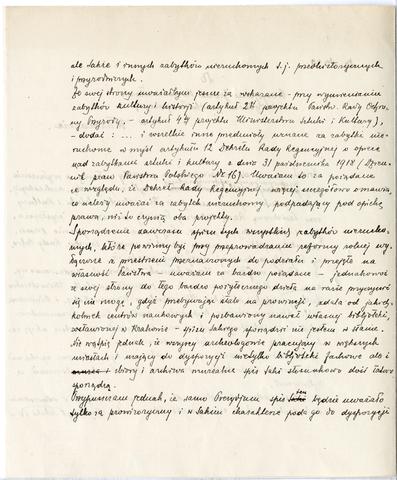 ale także i innych zabytków nieruchomych t.j. przedhistorycznych
i przyrodniczych.
Ze swej strony uważałbym jeszcze za wskazane - przy wymienianiu
zabytków kultury i historji (artykuł 2 projektu Państw. Rady Ochro-
ny Przyrody, - artykuł 4 projektu Ministerstwa Sztuki i Kultury),
- dodać: ... i wszelkie inne przedmioty uznane za zabytki nie-
ruchome w myśl artykułu 12 Dekretu Rady Regencyjnej o opiece
nad zabytkami sztuki i kultury z dnia 31 października 1918 (Dzien-
nik praw Państwa Polskiego Nr 16). Uważam to za pożądane
ze względu, że Dekret Rady Regencyjnej więcej szczegółowo omawia,
co należy uważać za zabytek nieruchomy, podpadający pod opiekę
prawa, niż to czynią oba projekty.
Sporządzenie zawczasu spisu tych wszystkich zabytków nierucho-
mych, które powinny być przy przeprowadzaniu reformy rolnej wy-
łączone z przestrzeni przeznaczonych do podziału i przejęte na
własność Państwa - uważam za bardzo pożądane - jednakowoż
z swej strony do tego bardzo pożytecznego dzieła na razie przyczynić
się nie mogę, gdyż przebywając stale na prowincji, zdala od jakich-
kolwiek centrów naukowych i pozbawiony nawet własnej bibljoteki,
zostawionej w Krakowie - spisu takiego sporządzić nie jestem w stanie.
Nie wątpię jednak, że wszyscy archeologowie pracujący w większych
miastach i mający do dyspozycji nietylko bibljoteki fachowe ale i
zbiory i archiwa muzealne spis taki stosunkowo dość łatwo
sporządzą.
Przypuszczam jednak, że samo Prezydjum spis ten będzie uważało
tylko za prowizoryczny i w takim charakterze poda go do dyspozycji